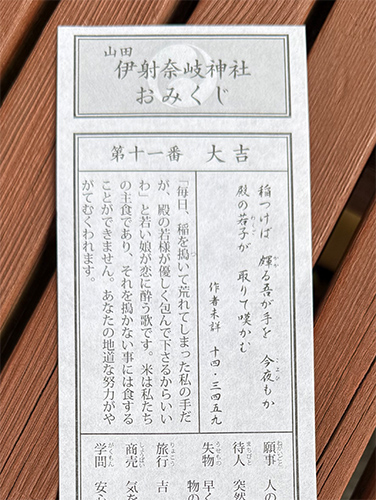 山田
伊射奈岐神社
おみくじ
第十一番 大吉
稲つけば 皹る吾が手を 今夜もか
殿の若子が 取りて嘆かむ
作者未詳 十四・三四五九
「毎日、稲を搗いて荒れてしまった私の手だ
が、殿の若様が優しく包んで下さるからいい
わ」と若い娘が恋に酔う歌です。米は私たち
の主食であり、それを搗かない事には食する
ことができません。あなたの地道な努力がや
がてむくわれます。
願事 人の
待人 突然
失物 早く
物の
旅行 吉
商売 気を
学問 安